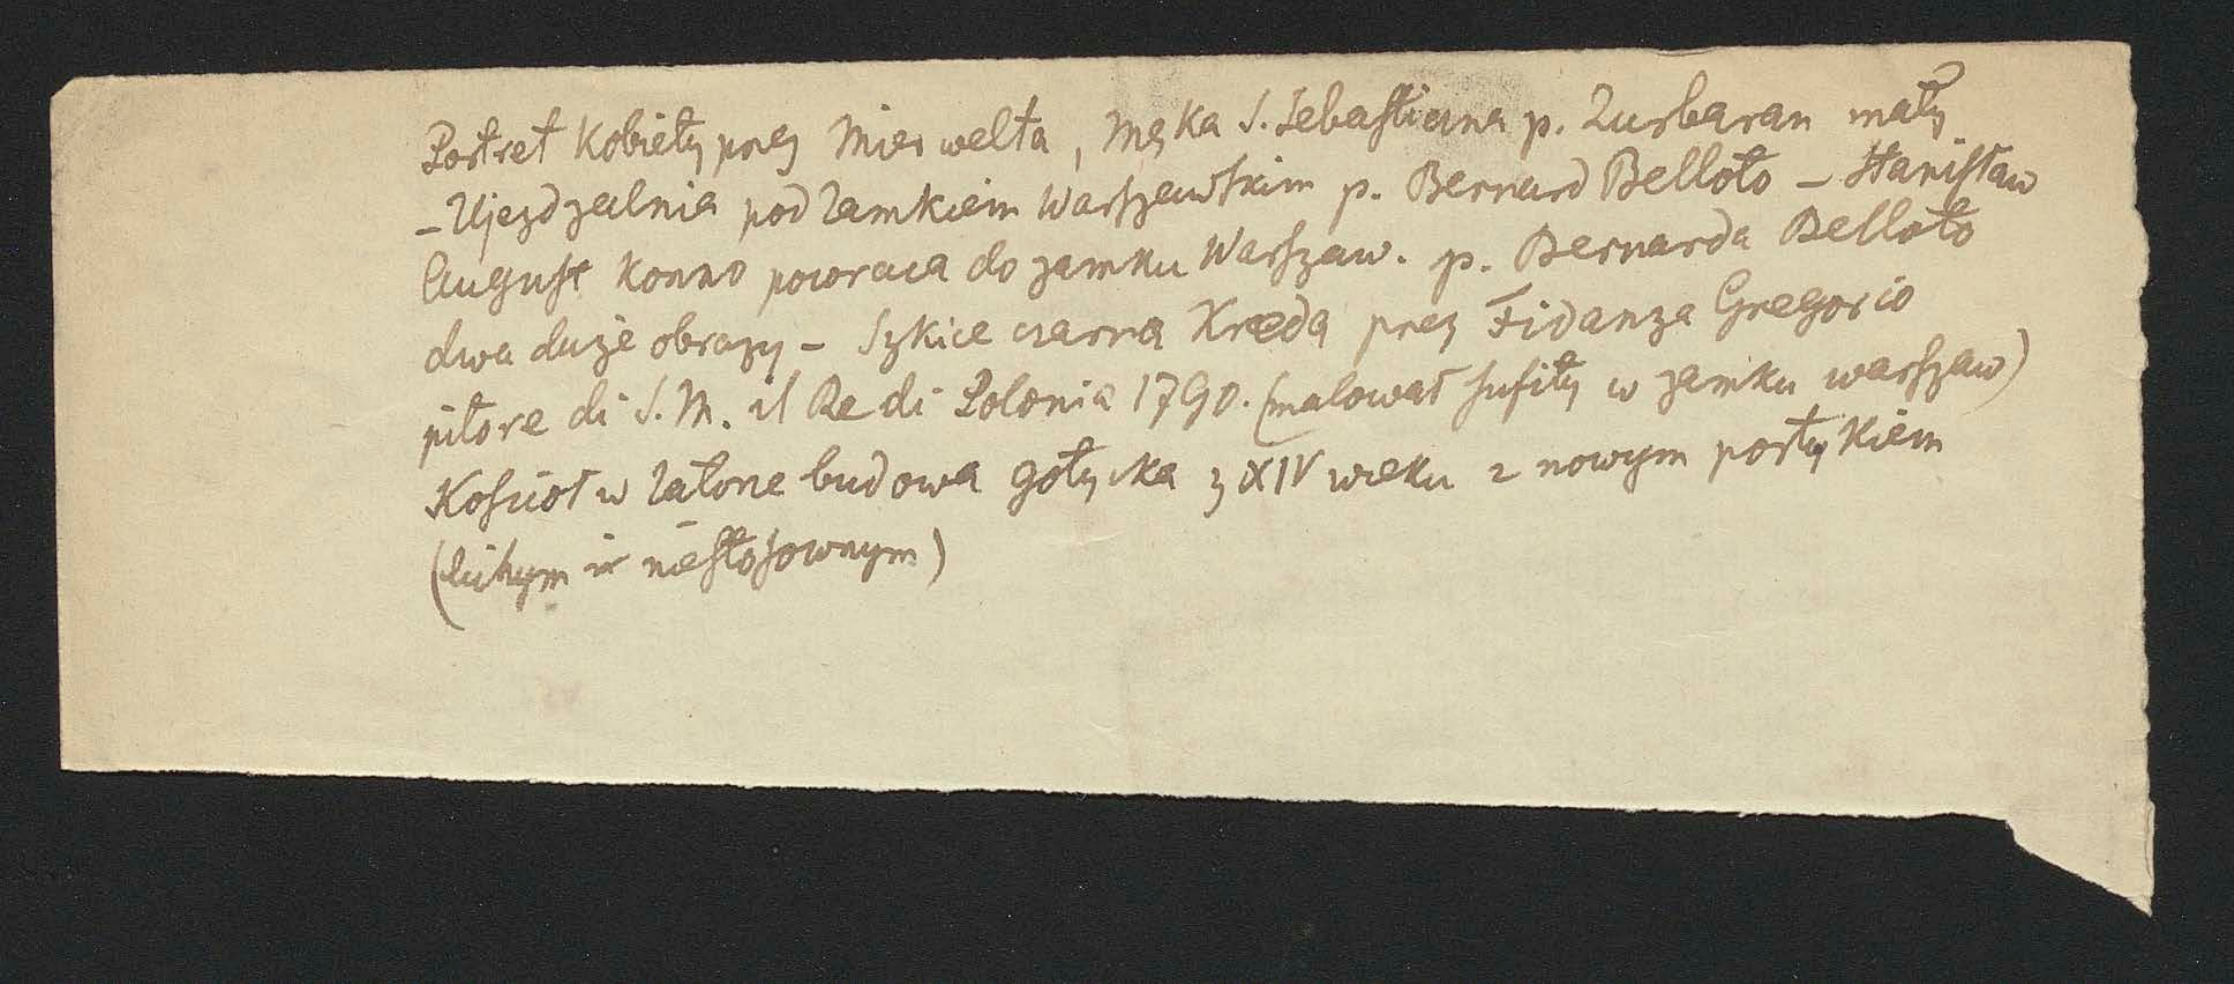 Portret Kobiety przez Mierwelta, Męka S. Sebastiana p. Zurbaran mały
– Ujezdzalnia pod Zamkiem Warszawskim p. Bernard Belloto – Stanisław
August Konno powraca do zamku Warszaw. p. Bernarda Belloto
dwa duże obrazy – Szkice czarna Kreda przez Fidanza Gregorio
pitore di S. M. il Re di Polonia 1790. (malował sufity w zamku warszaw)
Kościoł w Zatone budowa gotycka z XIV wieku z nowym portykiem
(lichym i niestosownym)